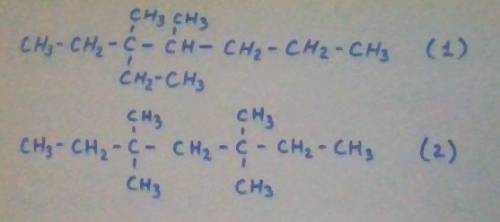 CH3 CH3
CH3-CH2-C-CH-CH2-CH2-CH3 (1)
CH2-CH3
CH3 CH3
CH3-CH2-C-CH2-C-CH2-CH3 (2)
CH3 CH3